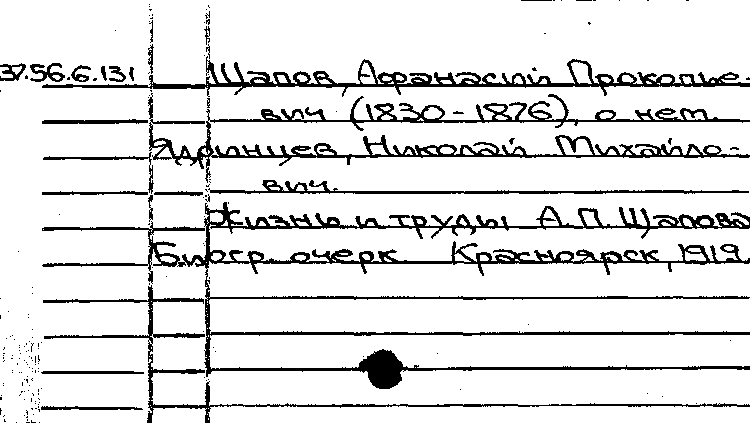 37.56.6.131 Щапов, Афанасий Прокопье-
вич (1830-1876), о нем.
Ядринцев, Николай Михайло-
вич.
Жизнь и труды А.П. Щапова
Биогр. очерк Красноярск, 1919.